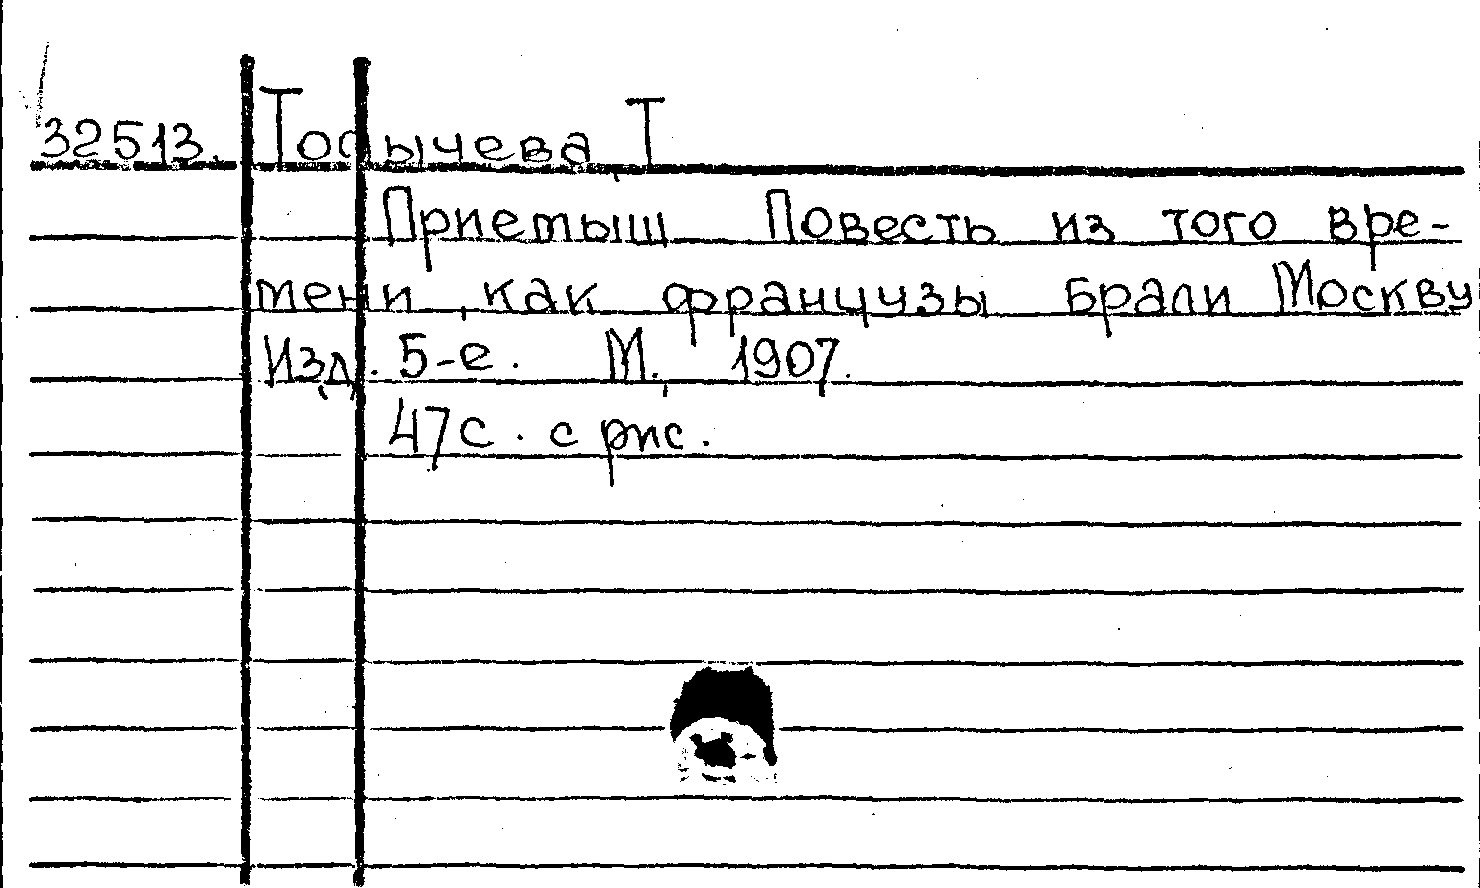 32513. Толычева, Т
Приемыш Повесть из того вре-
мени, как французы брали Москву
Изд. 5-е. М., 1907.
47с. с рис.